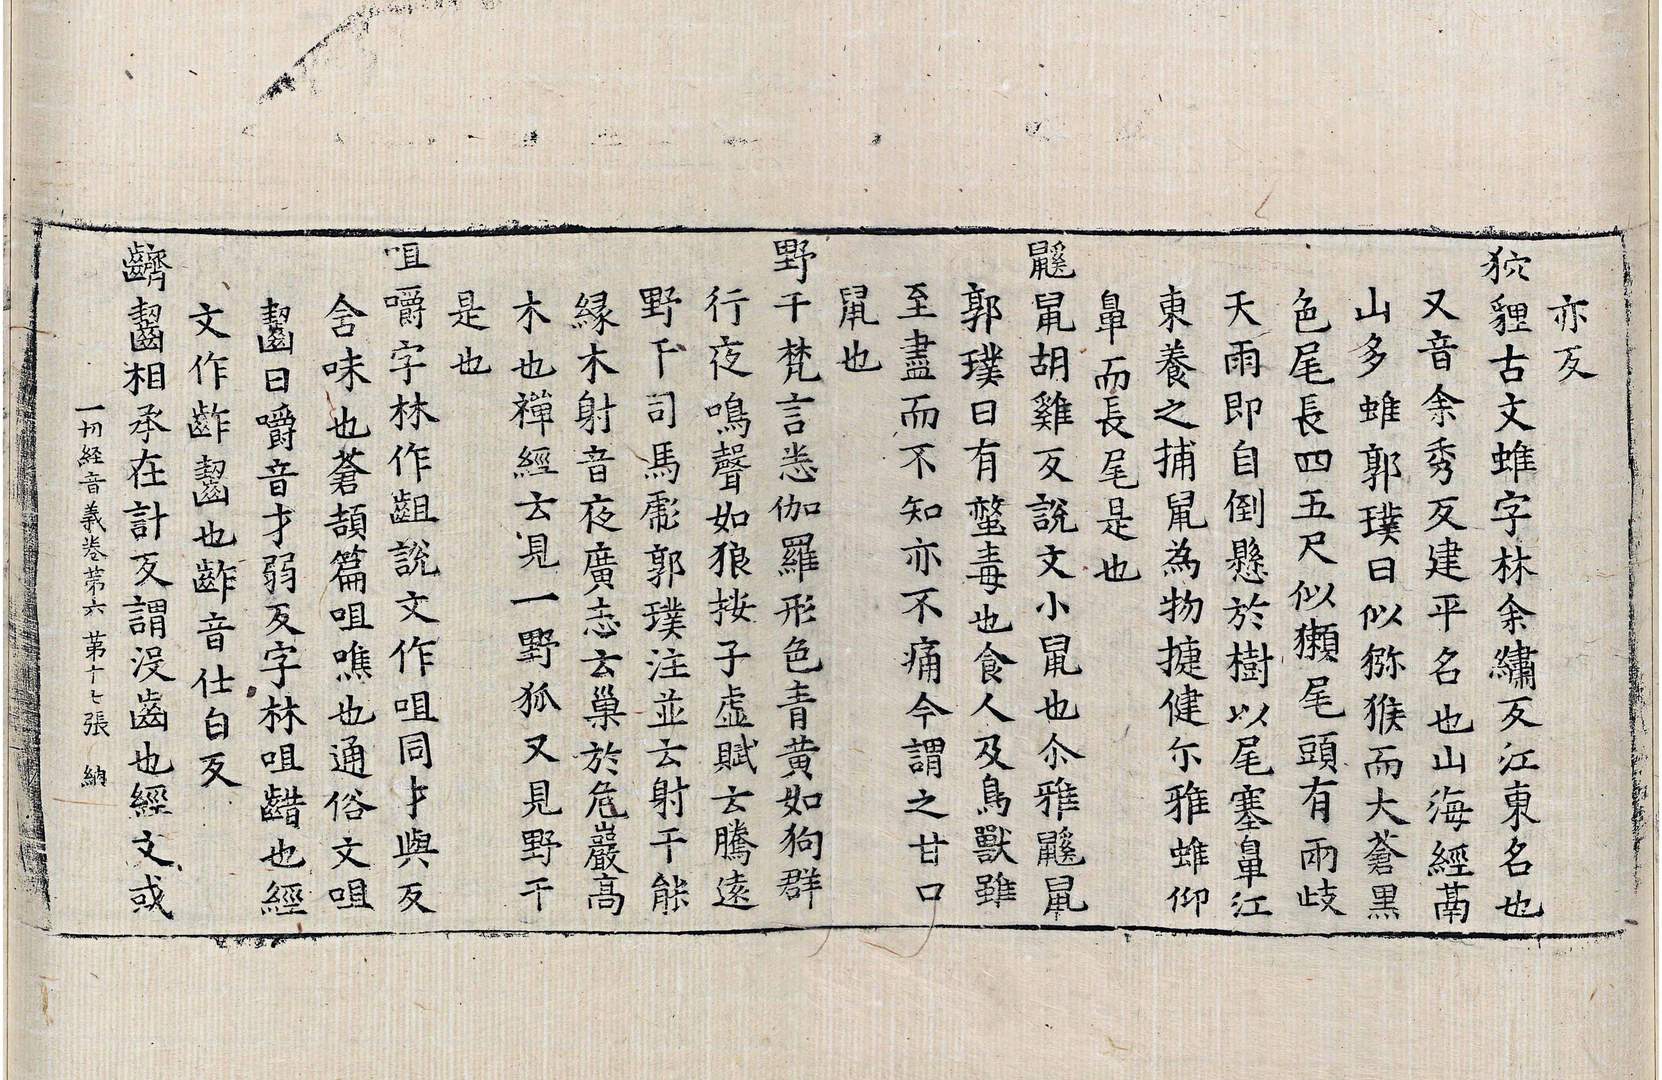 亦反
狖貍古文蜼字林余繡反江東名也
又音余秀反建平名也山海經鬲
山多蜼郭璞曰似獼猴而大蒼黒
色尾長四五尺似獺尾頭有兩歧
天雨即自倒懸於樹以尾塞鼻江
東養之捕鼠為物捷健尒雅蜼仰
鼻而長尾是也
鼷鼠胡雞反說文小鼠也尒雅鼷鼠
郭璞曰有螫毒也食人及鳥獸雖
至盡而不知亦不痛今謂之甘口
鼠也
野干梵言悉伽羅形色青黄如狗群
行夜鳴聲如狼按子虛賦云騰遠
野干司馬彪郭璞注並云射干能
緣木射音夜廣志云巢於危巖高
木也禪經云見一野狐又見野干
是也
咀嚼字林作齟說文作咀同才與反
含味也蒼頡篇咀噍也通俗文咀
齧曰嚼音才弱反字林咀齰也經
文作齚齧也齚音仕白反
齌齧相承在計反謂没齒也經文或
一切経音義卷第六 第十七張 納